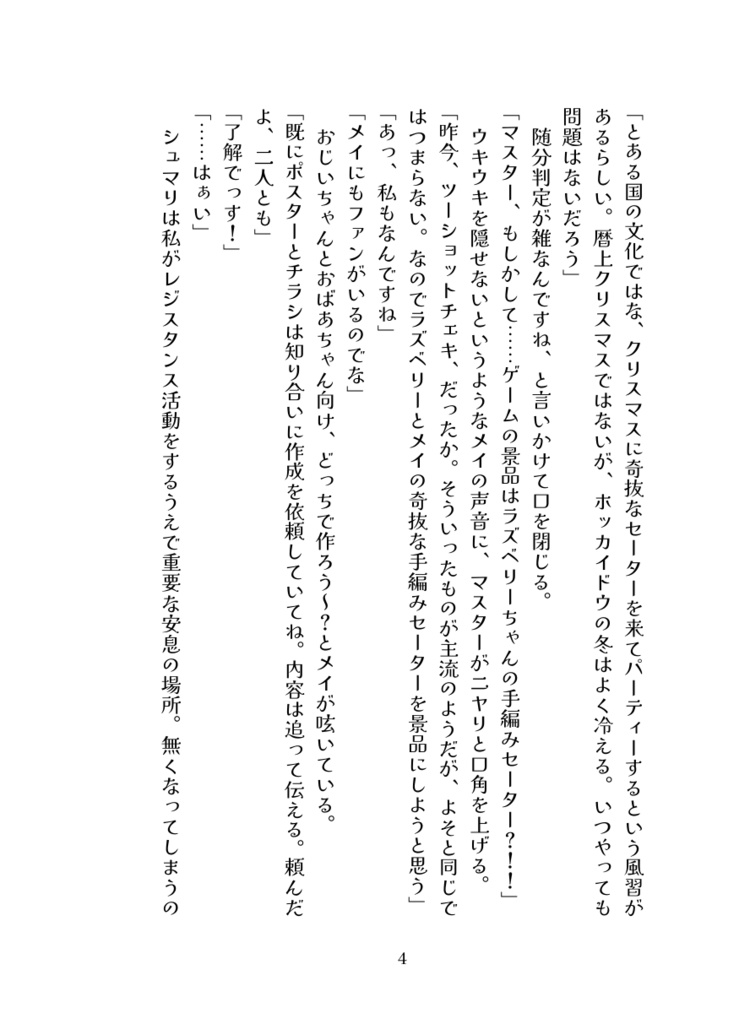 「とある国の文化ではな、クリスマスに奇抜なセーターを来てパーティーするという風習が
あるらしい。暦上クリスマスではないが、ホッカイドウの冬はよく冷える。いつやっても
問題はないだろう」
　随分判定が雑なんですね、と言いかけて口を閉じる。
「マスター、もしかして……ゲームの景品はラズベリーちゃんの手編みセーター？！！」
　ウキウキを隠せないというようなメイの声音に、マスターがニヤリと口角を上げる。
「昨今、ツーショットチェキ、だったか。そういったものが主流のようだが、よそと同じで
はつまらない。なのでラズベリーとメイの奇抜な手編みセーターを景品にしようと思う」
「あっ、私もなんですね」
「メイにもファンがいるのでな」
　おじいちゃんとおばあちゃん向け、どっちで作ろう〜？とメイが呟いている。
「既にポスターとチラシは知り合いに作成を依頼していてね。内容は追って伝える。頼んだ
よ、二人とも」
「了解でっす！」
「……はぁい」
　シュマリは私がレジスタンス活動をするうえで重要な安息の場所。無くなってしまうの
4